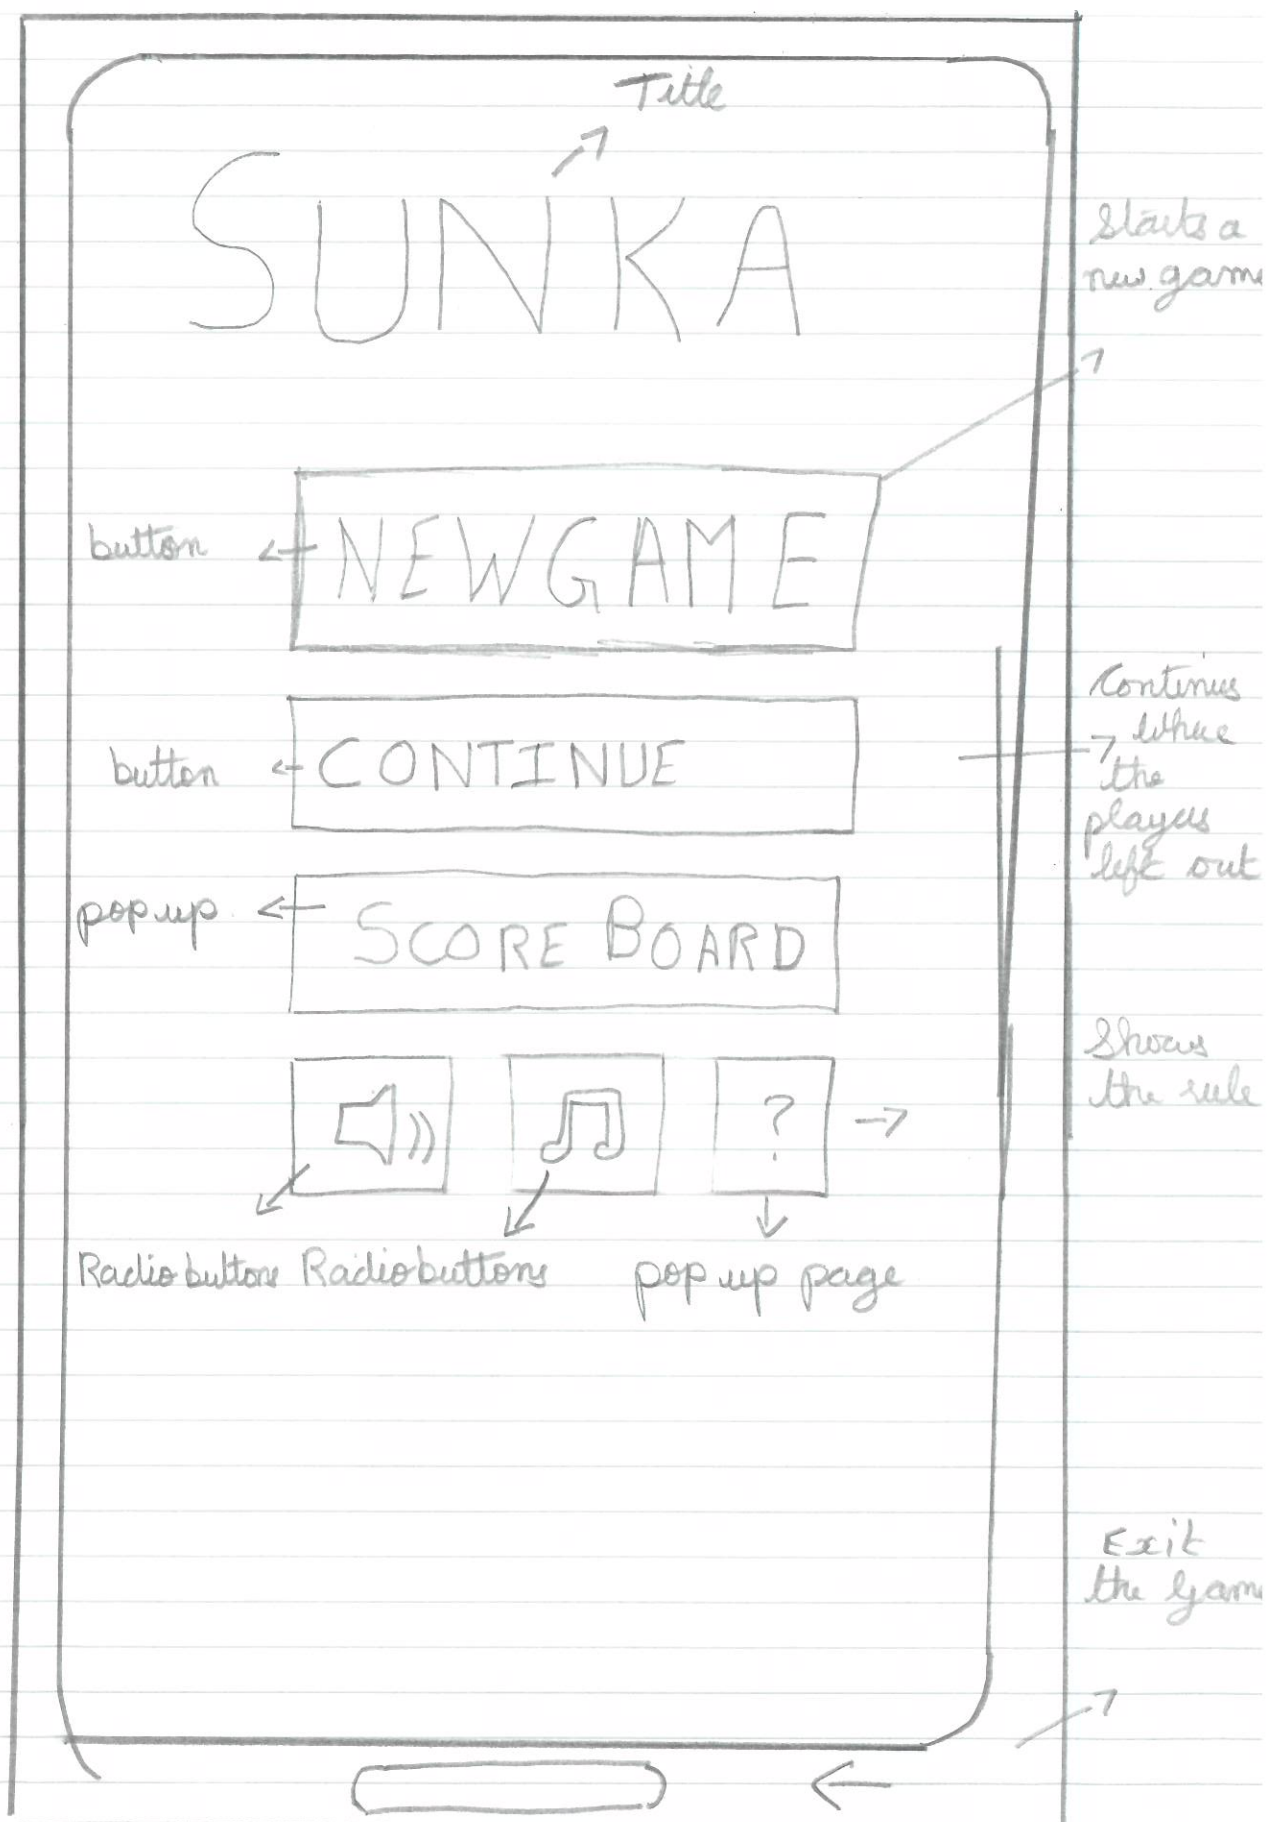 Title
SUNKA
Starts a
new game
button
NEWGAME
Continues
where
the
players
left out
button
CONTINUE
pop up
SCORE BOARD
Shows
the rule
?
Radio buttons Radio buttons pop up page
Exit
the Game